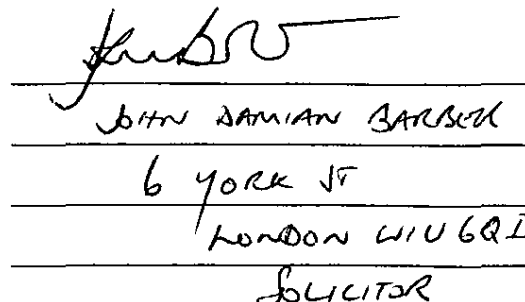 JOHN DAMIAN BARBER
6 YORK ST
LONDON W1U 6Q
SOLICITOR